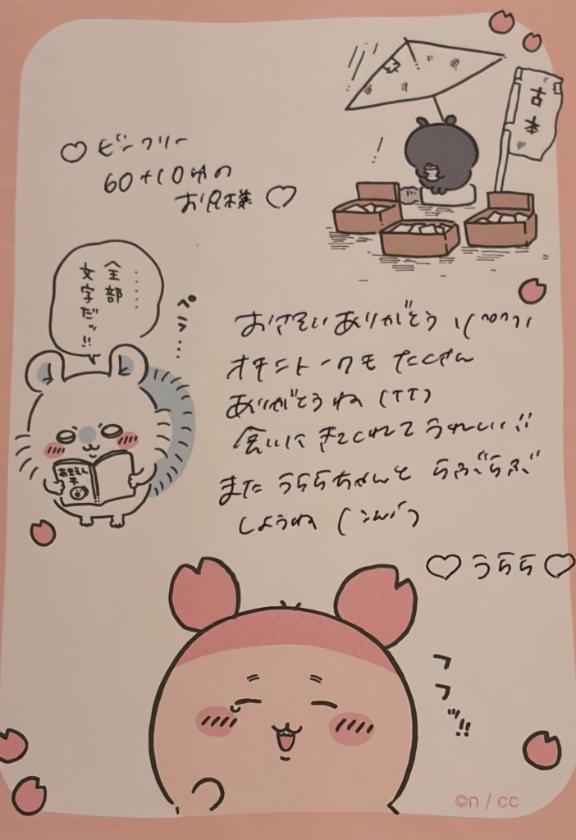 古本
♡ ビンワリー
60+10分の
お兄様 ♡
……
全部
文字だッ!!
ペラ…
おさそいありがとう \(^o^)/
オキニトークも たくさん
ありがとうね (TT)
会いに きてくれて うれしい !!
また うららちゃんと らぶらぶ
しようね
♡ うらら ♡
フフッ!!
©n / cc